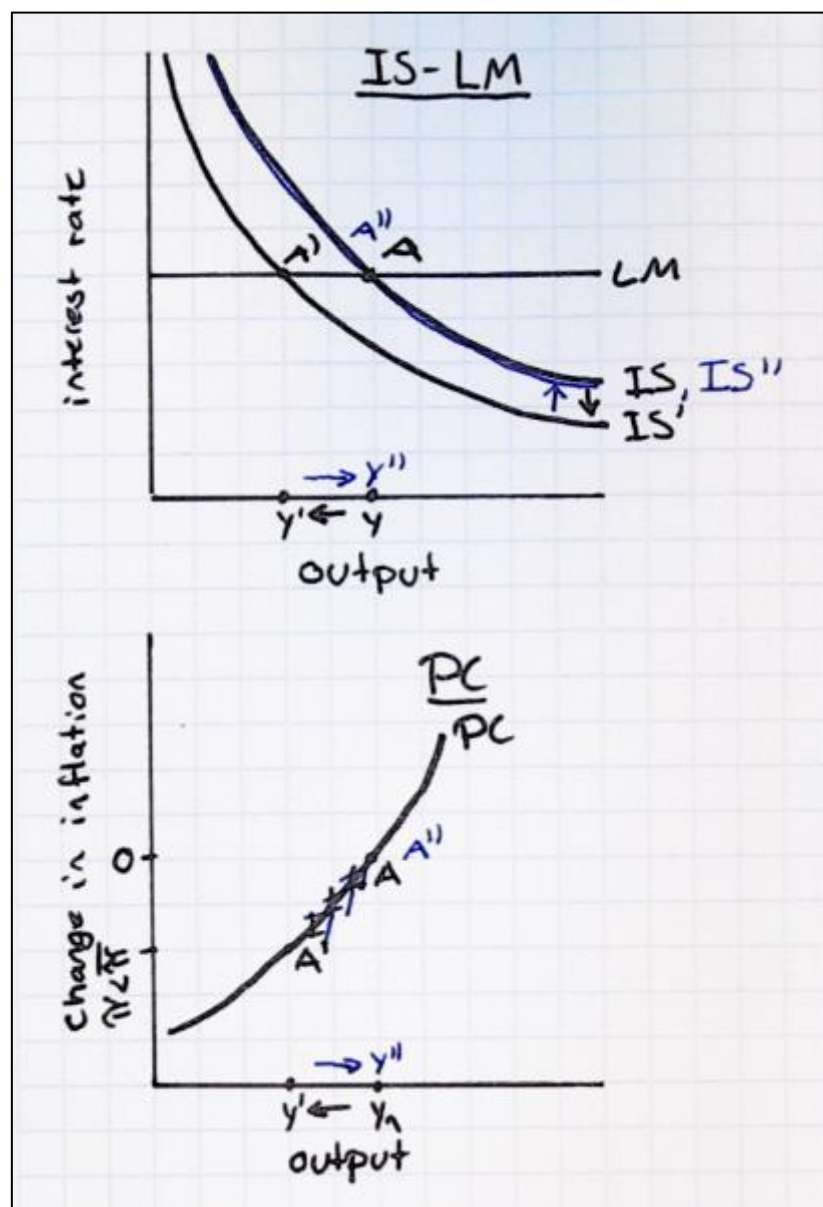 IS-LM
interest rate
A'
A''
A
LM
IS, IS''
IS'
→ Y''
Y' ← Y
output
PC
PC
change in inflation
0
A A''
A'
π<π̅
→ Y''
Y' ← Yn
output